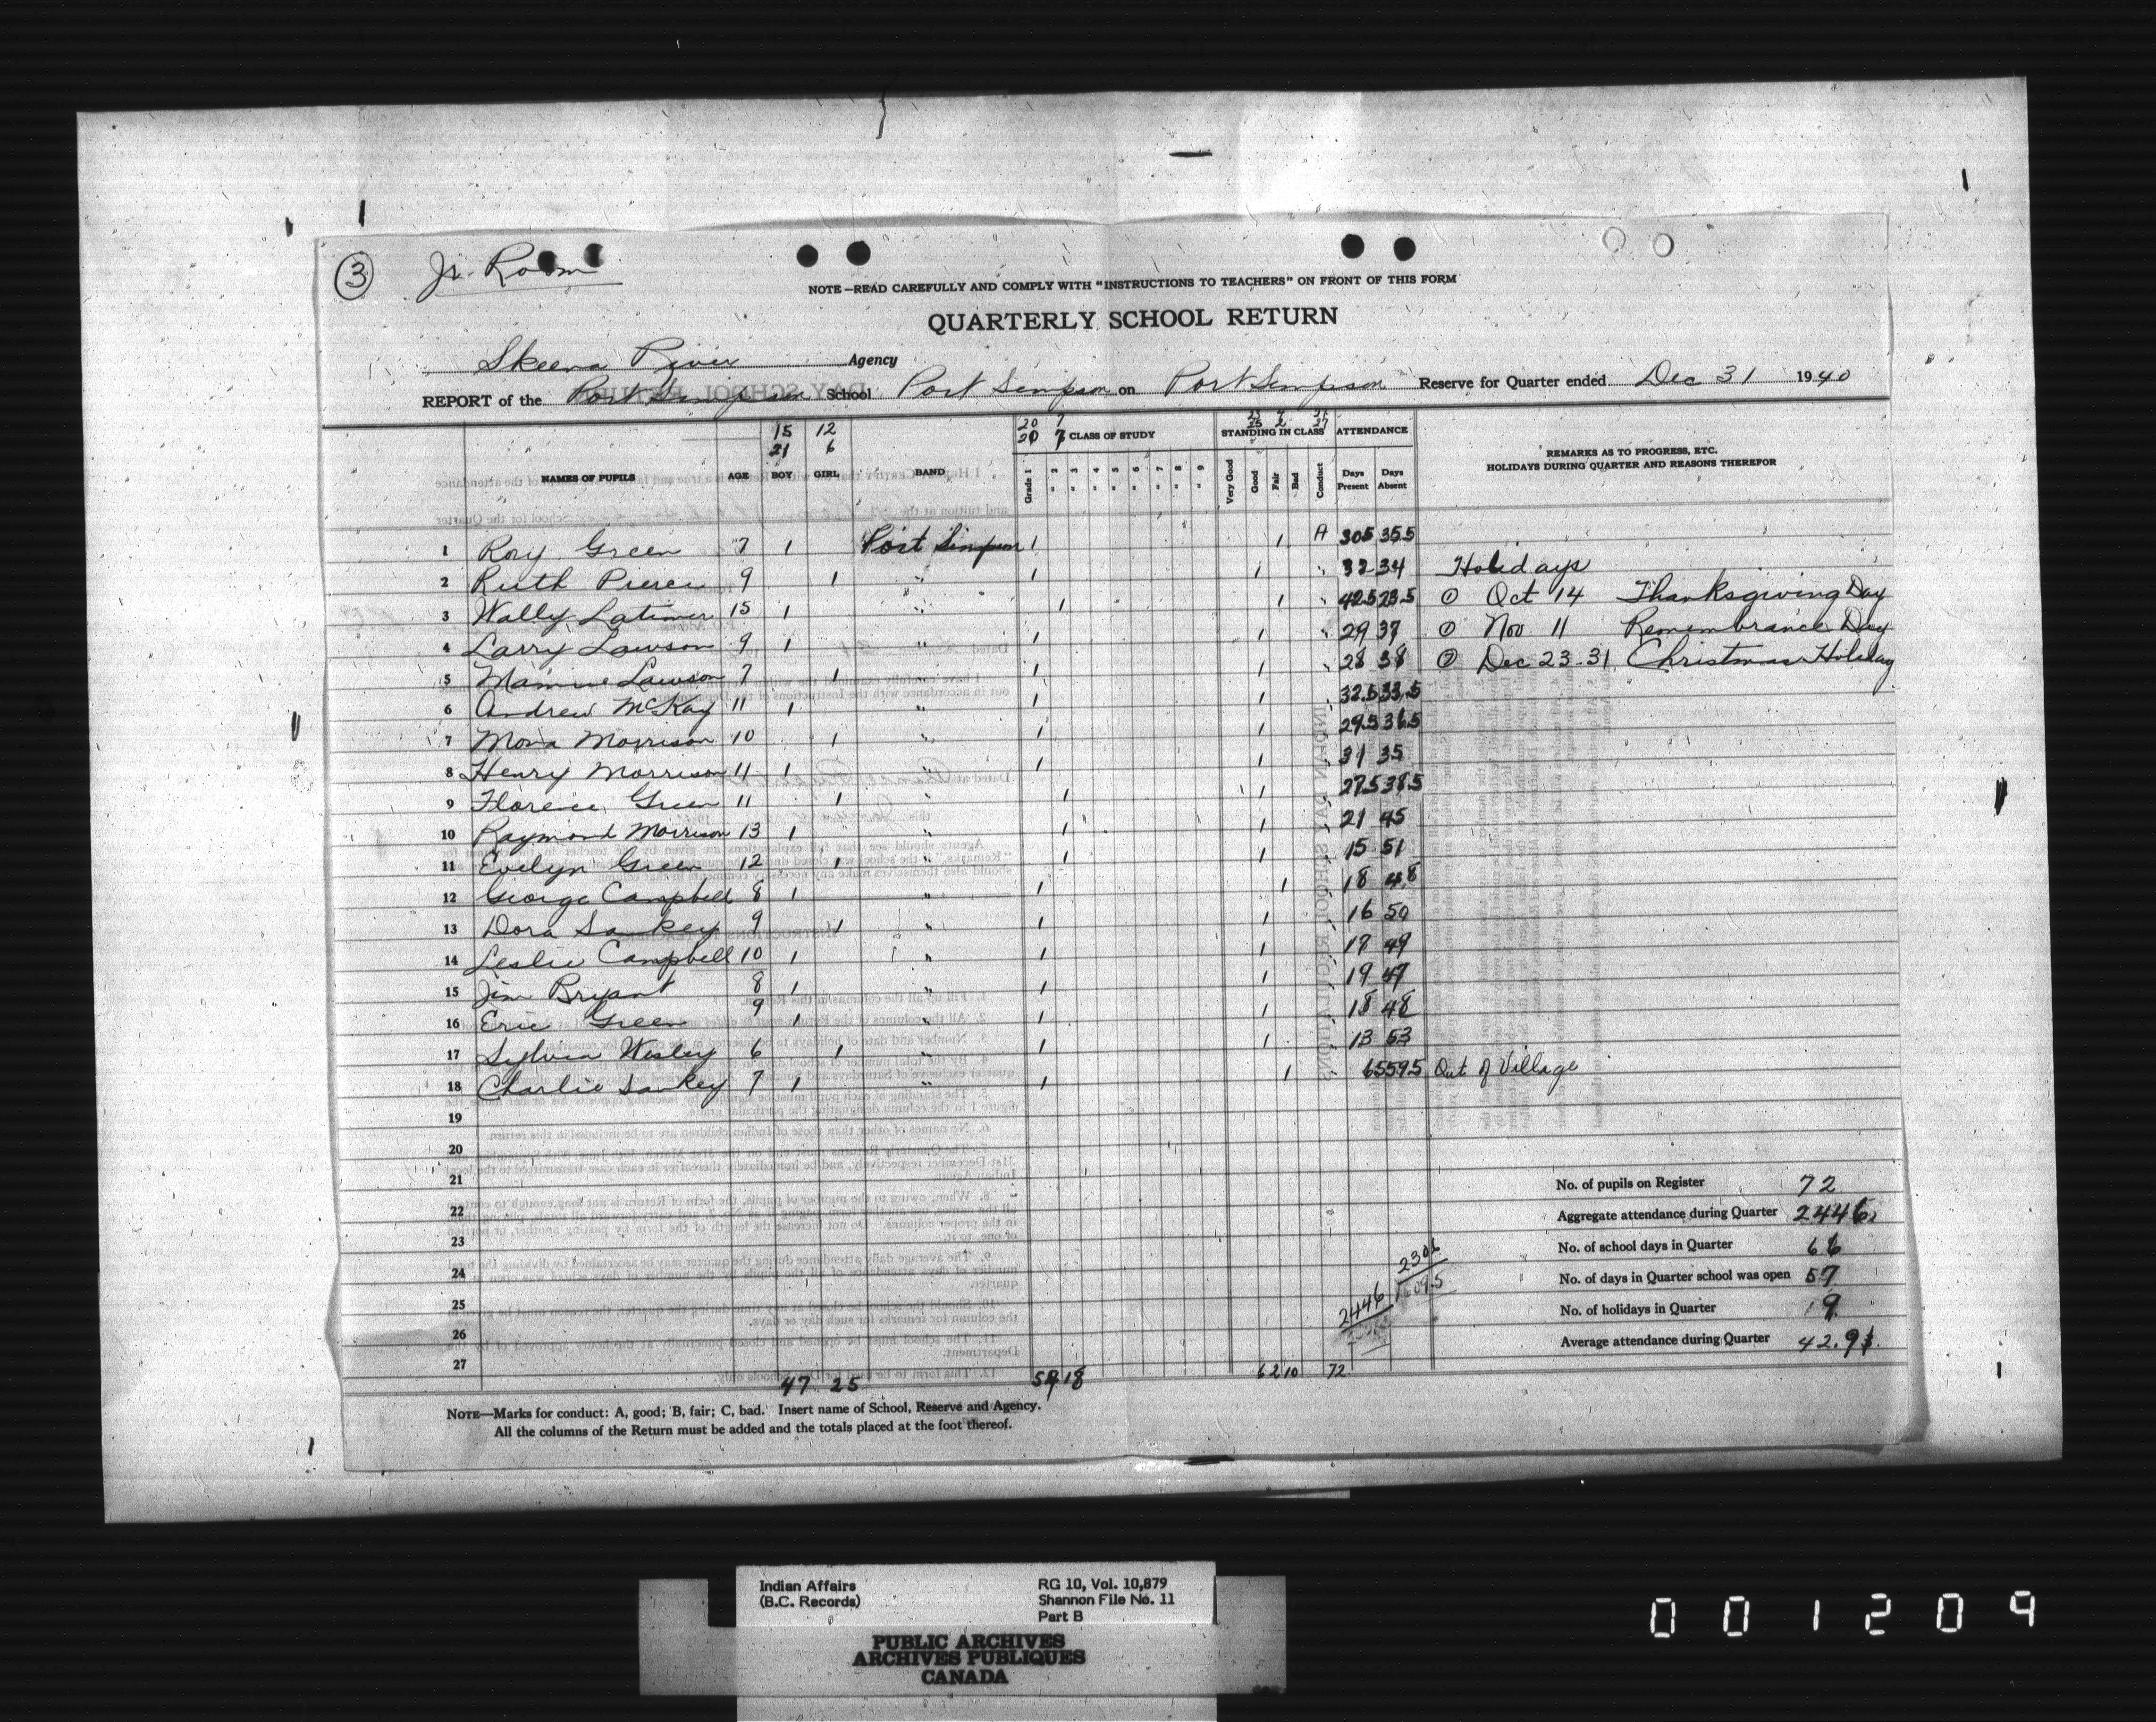 ③ Jr. Room
NOTE—READ CAREFULLY AND COMPLY WITH "INSTRUCTIONS TO TEACHERS" ON FRONT OF THIS FORM
QUARTERLY SCHOOL RETURN
Skeena River Agency
REPORT of the Port Simpson School Port Simpson on Port Simpson Reserve for Quarter ended Dec 31 1940
15 12 20 7
21 6 20 7 CLASS OF STUDY STANDING IN CLASS ATTENDANCE
NAMES OF PUPILS AGE BOY GIRL BAND Grade 1 " 2 " 3 " 4 " 5 " 6 " 7 " 8 " 9 Very Good Good Fair Bad Conduct Days Present Days Absent REMARKS AS TO PROGRESS, ETC.
HOLIDAYS DURING QUARTER AND REASONS THEREFOR
1 Roy Green 7 1 Port Simpson 1 1 A 30.5 35.5
2 Ruth Pierce 9 1 " 1 1 " 32 34 Holidays
3 Wally Latimer 15 1 " 1 1 " 42.5 23.5 ① Oct 14 Thanksgiving Day
4 Larry Lawson 9 1 " 1 1 " 29 37 ① Nov. 11 Remembrance Day
5 Mamie Lawson 7 1 " 1 1 " 28 38 ⑦ Dec 23-31 Christmas Holiday
6 Andrew McKay 11 1 " 1 1 32.5 33.5
7 Mona Morrison 10 1 " 1 1 29.5 36.5
8 Henry Morrison 11 1 " 1 1 31 35
9 Florence Green 11 1 " 1 1 27.5 38.5
10 Raymond Morrison 13 1 " 1 1 21 45
11 Evelyn Green 12 1 " 1 1 15 51
12 George Campbell 8 1 " 1 1 18 48
13 Dora Sankey 9 1 " 1 1 16 50
14 Leslie Campbell 10 1 " 1 1 17 49
15 Jim Bryant 8 1 " 1 1 19 47
16 Eric Green 9 1 " 1 1 18 48
17 Sylvia Wesley 6 1 " 1 1 13 53
18 Charlie Sankey 7 1 " 1 1 6.5 59.5 Out of Village
19
20
21 No. of pupils on Register 72
22 Aggregate attendance during Quarter 2446
23 No. of school days in Quarter 66
24 2306 No. of days in Quarter school was open 57
25 2446 No. of holidays in Quarter 9
26 Average attendance during Quarter 42.91
27
47 25 54 18 62 10 72
NOTE—Marks for conduct: A, good; B, fair; C, bad. Insert name of School, Reserve and Agency.
All the columns of the Return must be added and the totals placed at the foot thereof.
Indian Affairs
(B.C. Records)
RG 10, Vol. 10,879
Shannon File No. 11
Part B
PUBLIC ARCHIVES
ARCHIVES PUBLIQUES
CANADA
001209